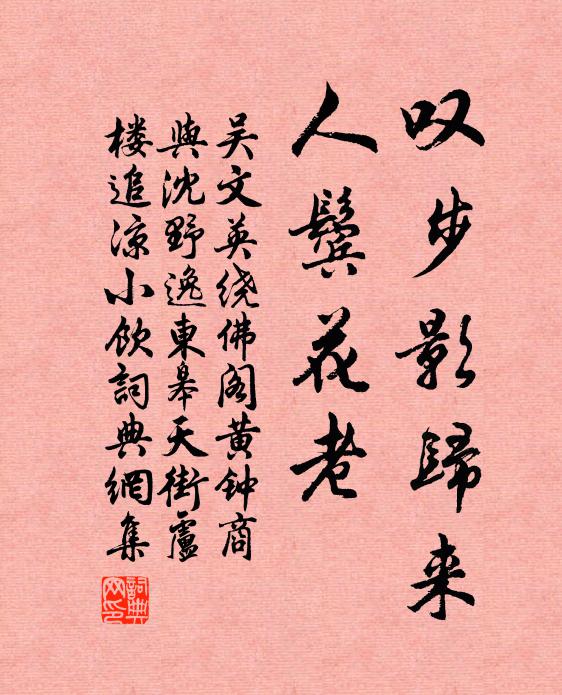 叹步影歸来
人鬓花老
吴文英绕佛阁黄钟商
與沈野逸東皋天街盧
楼追凉小饮詞典網集
詞典网印